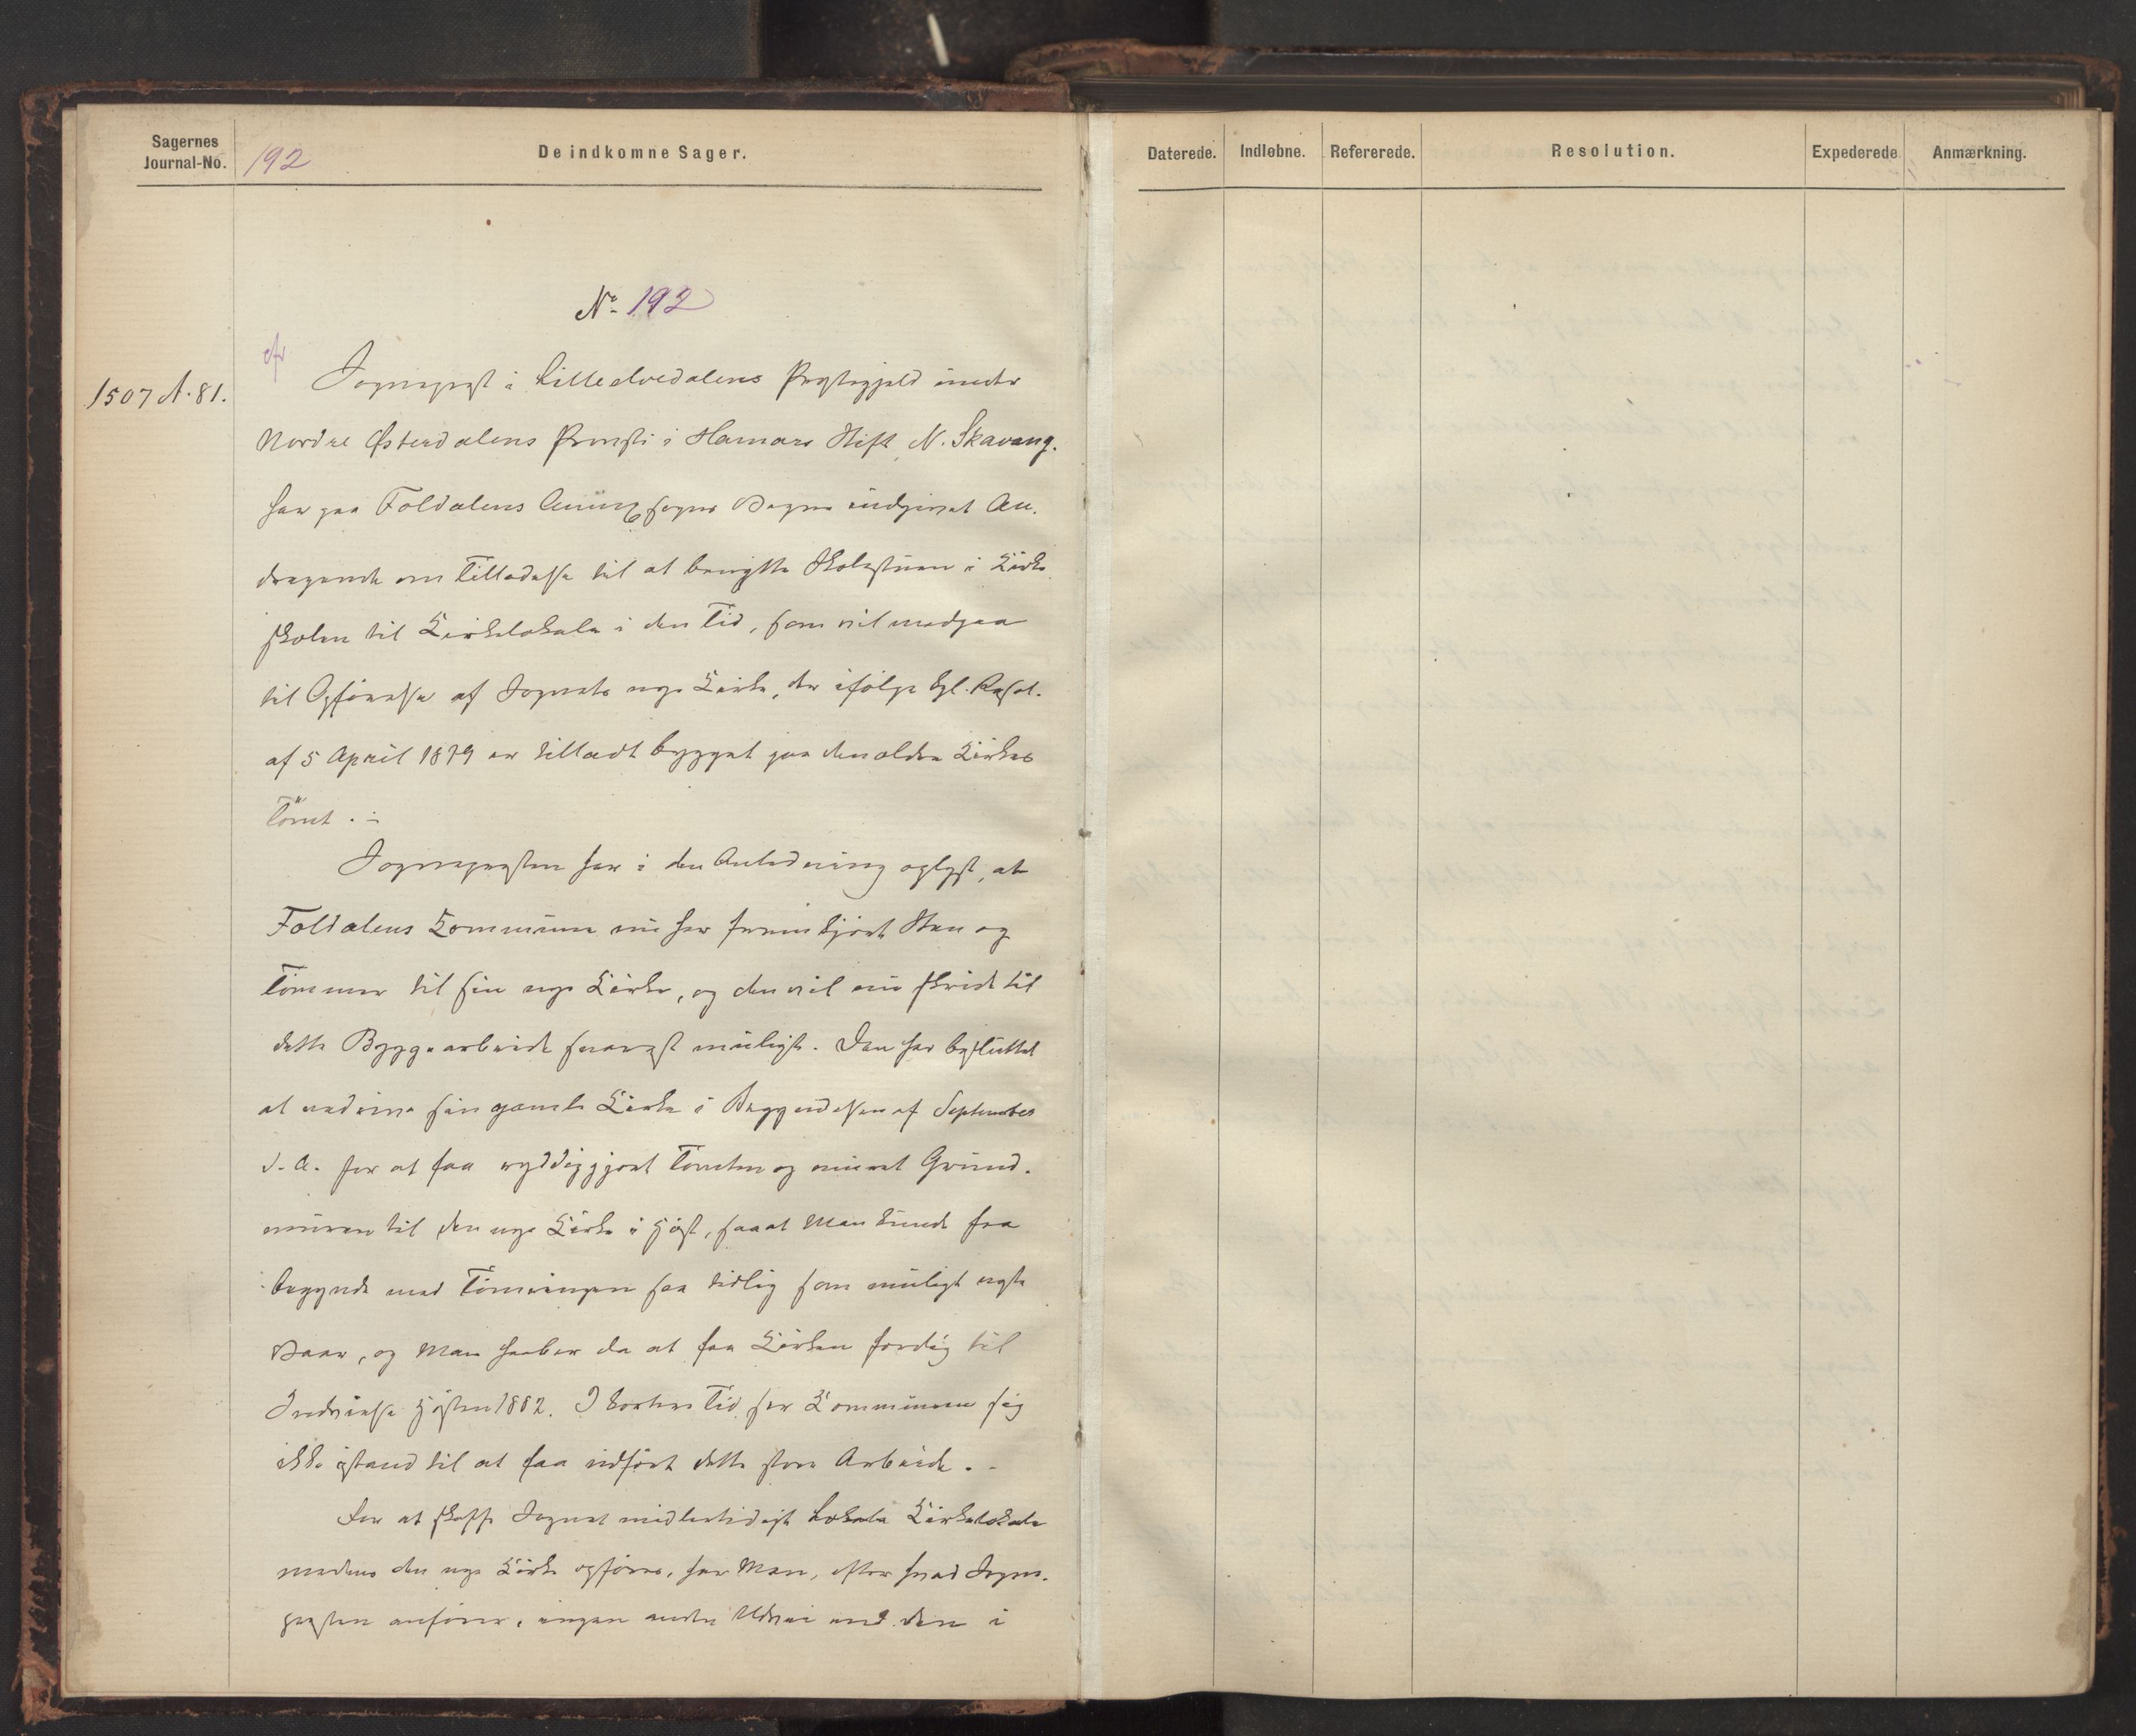 Sagernes
Journal-No.
192
De indkomne Sager.
Daterede.
Indløbne.
Refererede.
Resolution.
Expederede
Anmærkning.
No 192
cfr
1507 A. 81.
Sognepræst i Lilleelvedalens Præstegjeld under
Nordre Østerdalens Provsti i Hamars Stift, N. Skavang.
har paa Foldalens Annexsogns Vegne indgivet An-
dragende om Tilladelse til at benytte Skolestuen i Kirke
skolen til Kirkelokale i den Tid, som vil medgaa
til Opførelse af Sognets nye Kirke, der ifølge kgl. Resol.
af 5 April 1879 er tilladt bygget paa den ældre Kirkes
Tomt. -
Sognepræsten har i den Anledning oplyst, at
Foldalens Kommune nu har fremkjørt Sten og
Tømmer til sin nye Kirke, og den vil nu skride til
dette Byggearbeide snarest muligt. Den har besluttet
at nedrive sin gamle Kirke i Begyndelsen af September
d. A. for at faa ryddiggjort Tomten og muret Grund-
muren til den nye Kirke i Høst, saa at Man kunde faa
begynde med Tømringen saa tidlig som muligt næste
Vaar, og Man haaber da at faa Kirken færdig til
Indvielse Høsten 1882. I kortere Tid ser Kommunen sig
ikke istand til at faa udført dette store Arbeide. -
For at skaffe Sognet midlertidigt Lokale Kirkelokale
medens den nye Kirke opføres, har Man, efter hvad Sogne-
præsten anfører, ingen anden Udvei end den i